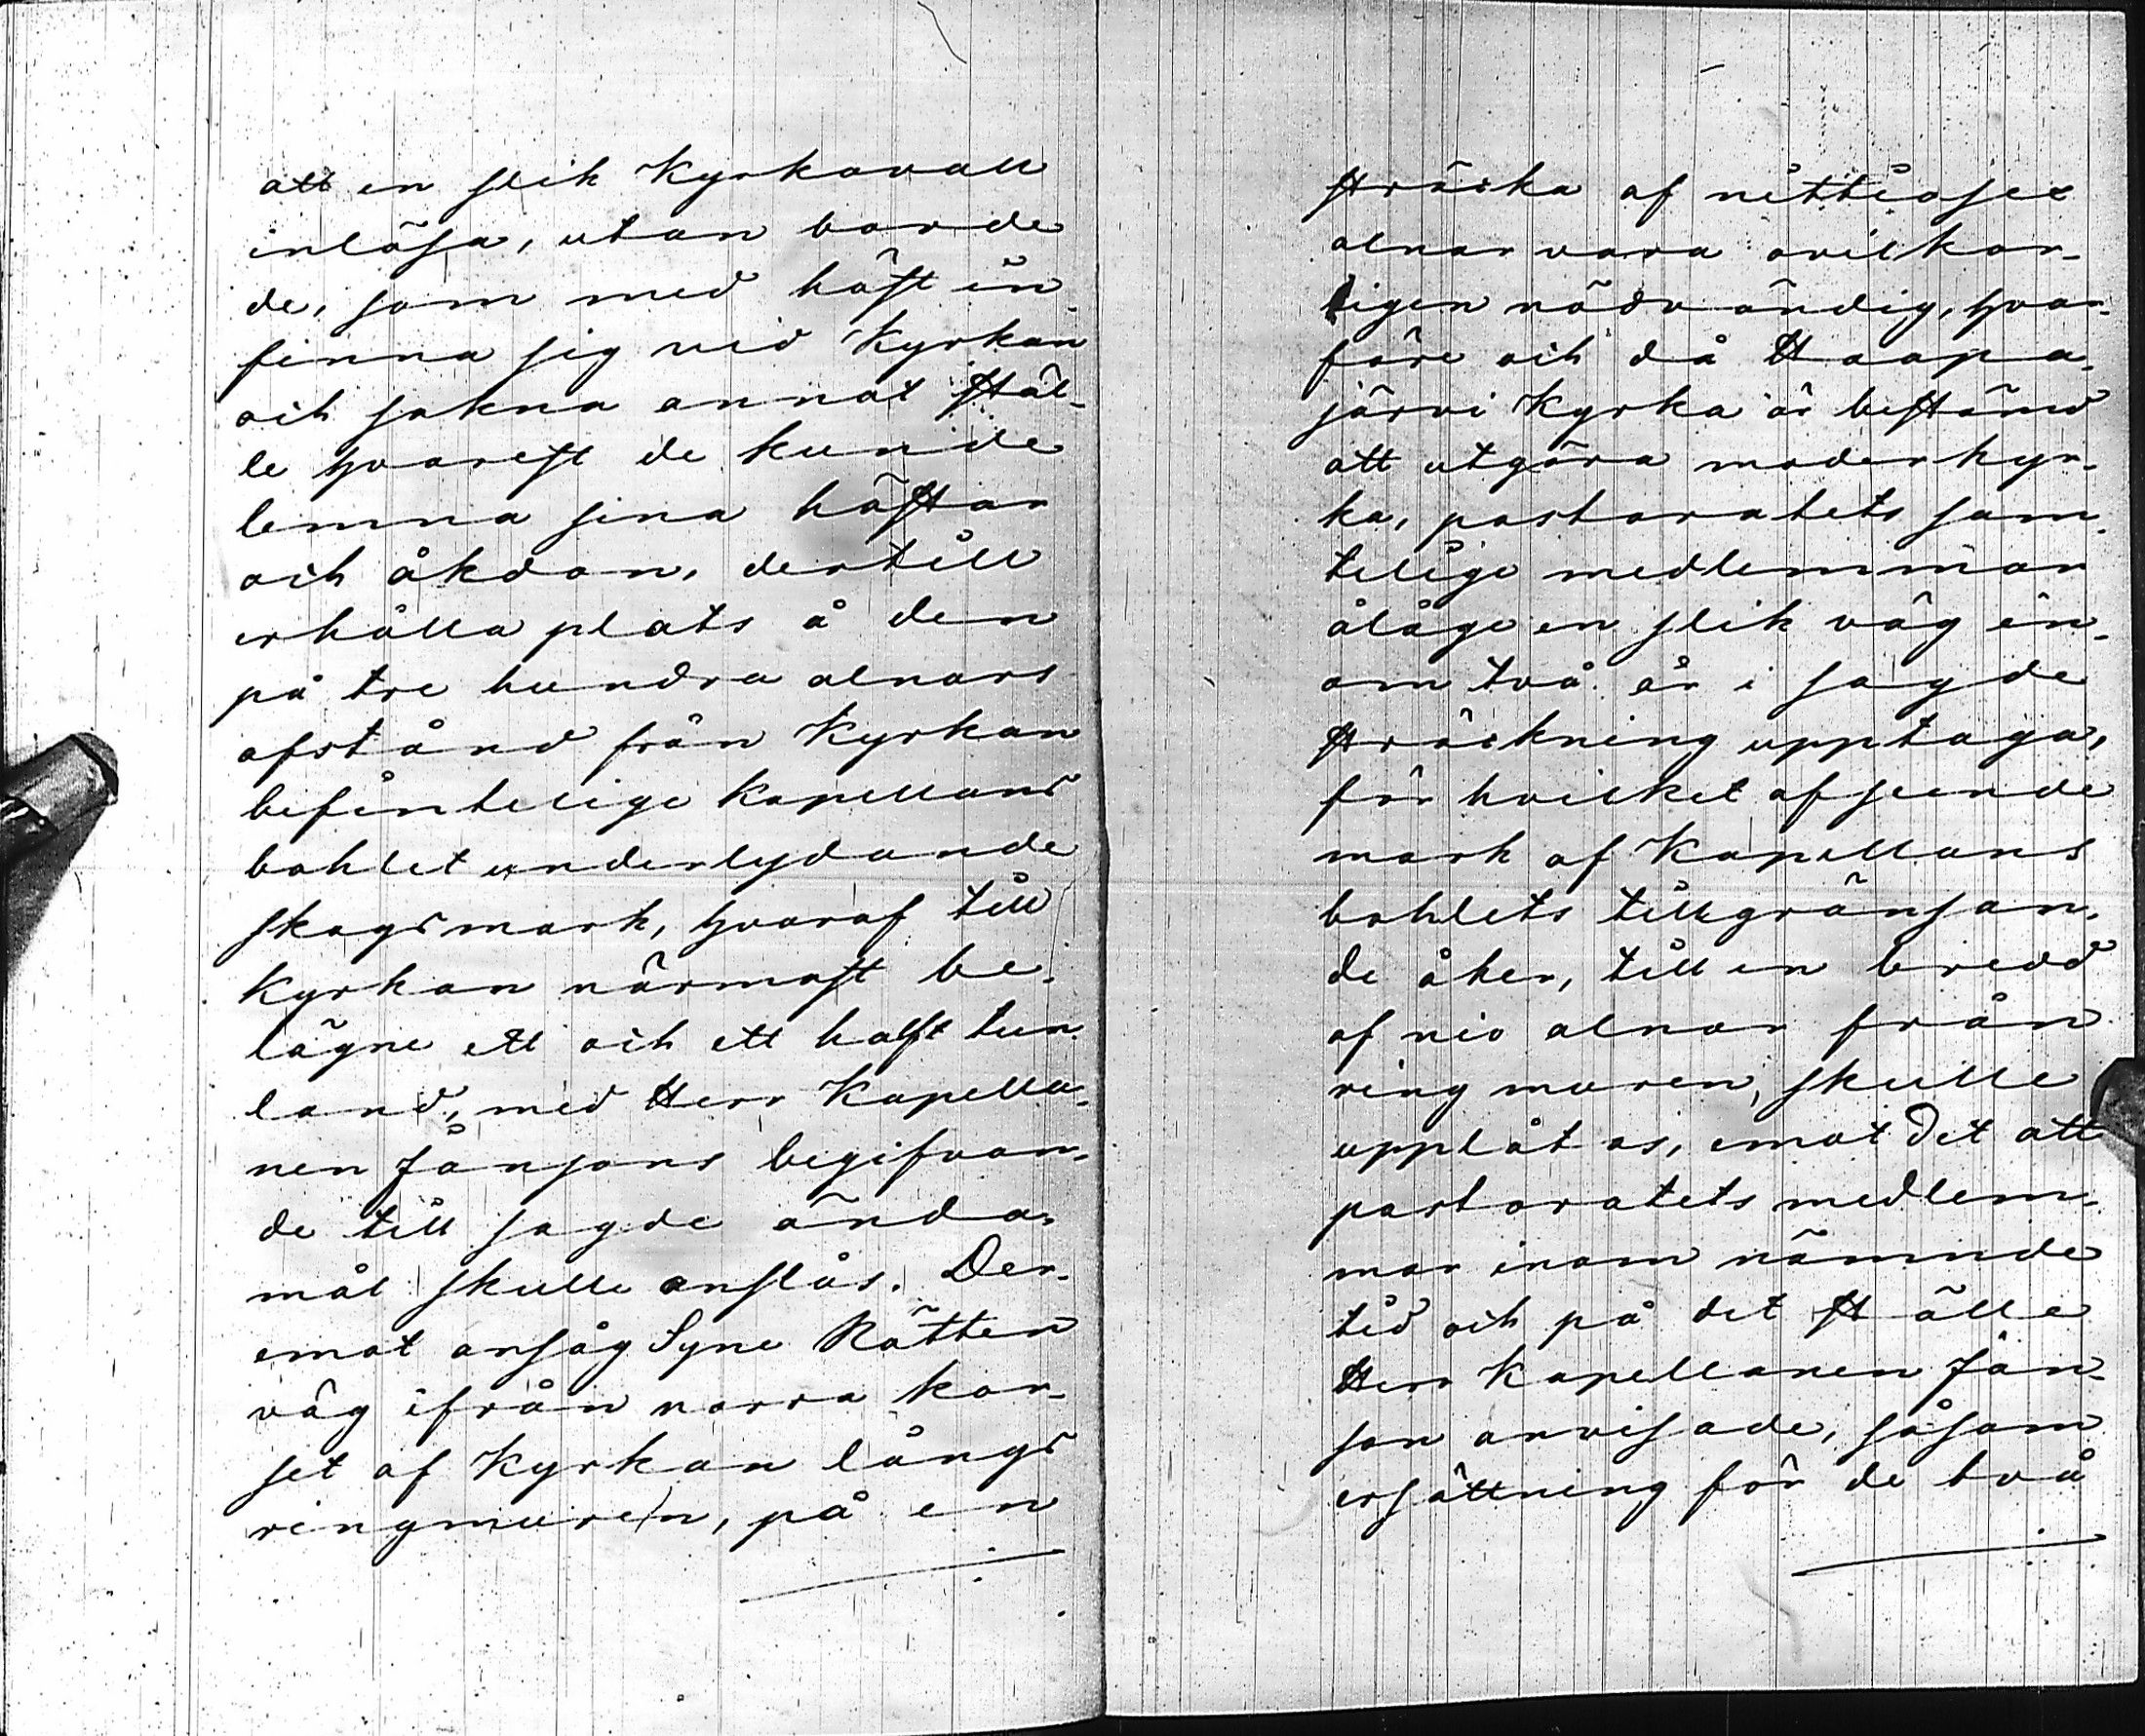 att en slik Kyrkovall
inlösa, utan borde
de, som med häst in
finna sig vid Kyrkan
och sakna annat stäl-
le hvarest de kunde
lemna sina hästar
och åkdon, dertill
erhålla plats å den
på tre hundra alnars
afstånd från Kyrkan
befintelige Kapellans
bohlet underlydande
skogsmark, hvaraf till
Kyrkan närmast be-
lägne ett och ett halft tun-
land, med Herr Kapella-
nen Jansons begifvan-
de till sagde ända-
mål skulle anslås. Der-
emot ansåg Syne Rätten
väg ifrån norra kor-
set af Kyrkan längs
ringmuren, på en
sträcka af nittiosex
alnar vara ovilkor-
ligen nödvändig, hvar-
före och då Haapa-
järvi Kyrka är bestämd
att utgöra moderkyr-
ka, pastoratets sam-
telige medlemmar
ålåge en slik väg in-
om två år i sagde
sträckning upptaga,
för hvilket afseende
mark af Kapellans
bohlets tillgränsan-
de åker, till en bredd
af nio alnar från
ringmuren, skulle
upplåtas, emot det att
pastoratets medlem-
mar inom nämnde
tid och på det ställe
Herr Kapellanen Jan-
son anvisade, såsom
ersättning för de två